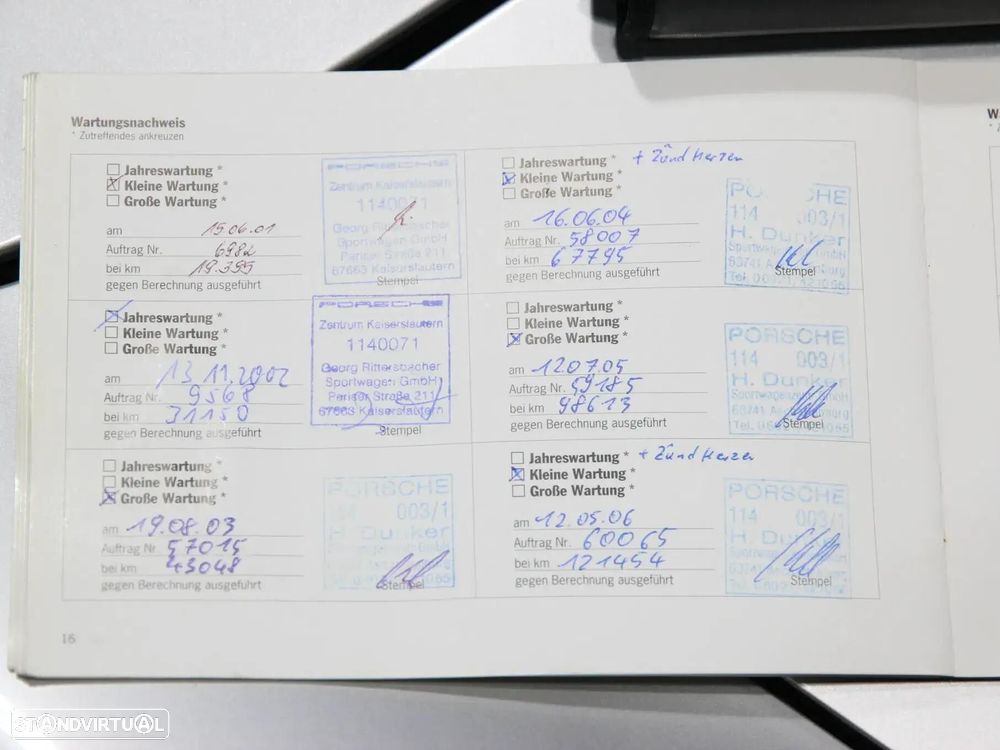 Wartungsnachweis
* Zutreffendes ankreuzen
Jahreswartung *
Kleine Wartung *
Große Wartung *
am 15.06.01
Auftrag Nr. 6982
bei km 19.395
gegen Berechnung ausgeführt
PORSCHE
Zentrum Kaiserslautern
1140071
Georg Rittersbacher
Sportwagen GmbH
Pariser Straße 211
67663 Kaiserslautern
Stempel
Jahreswartung *
Kleine Wartung *
Große Wartung *
am 13.11.2002
Auftrag Nr. 9568
bei km 31150
gegen Berechnung ausgeführt
PORSCHE
Zentrum Kaiserslautern
1140071
Georg Rittersbacher
Sportwagen GmbH
Pariser Straße 211
67663 Kaiserslautern
Stempel
Jahreswartung *
Kleine Wartung *
Große Wartung *
am 19.08.03
Auftrag Nr 57015
bei km 43048
gegen Berechnung ausgeführt
PORSCHE
003/1
H. Dunker
Stempel
16
Jahreswartung * + Zündkerzen
Kleine Wartung *
Große Wartung *
am 16.06.04
Auftrag Nr. 58007
bei km 67795
gegen Berechnung ausgeführt
PORSCHE
114 003/1
H. Dunker
Stempel
Jahreswartung *
Kleine Wartung *
Große Wartung *
am 12.07.05
Auftrag Nr. 59185
bei km 98613
gegen Berechnung ausgeführt
PORSCHE
114 003/1
H. Dunker
Stempel
Jahreswartung * + Zündkerzen
Kleine Wartung *
Große Wartung *
am 12.05.06
Auftrag Nr. 60065
bei km 121454
gegen Berechnung ausgeführt
PORSCHE
114 003/1
H. Dunker
Stempel
W
STANDVIRTUAL